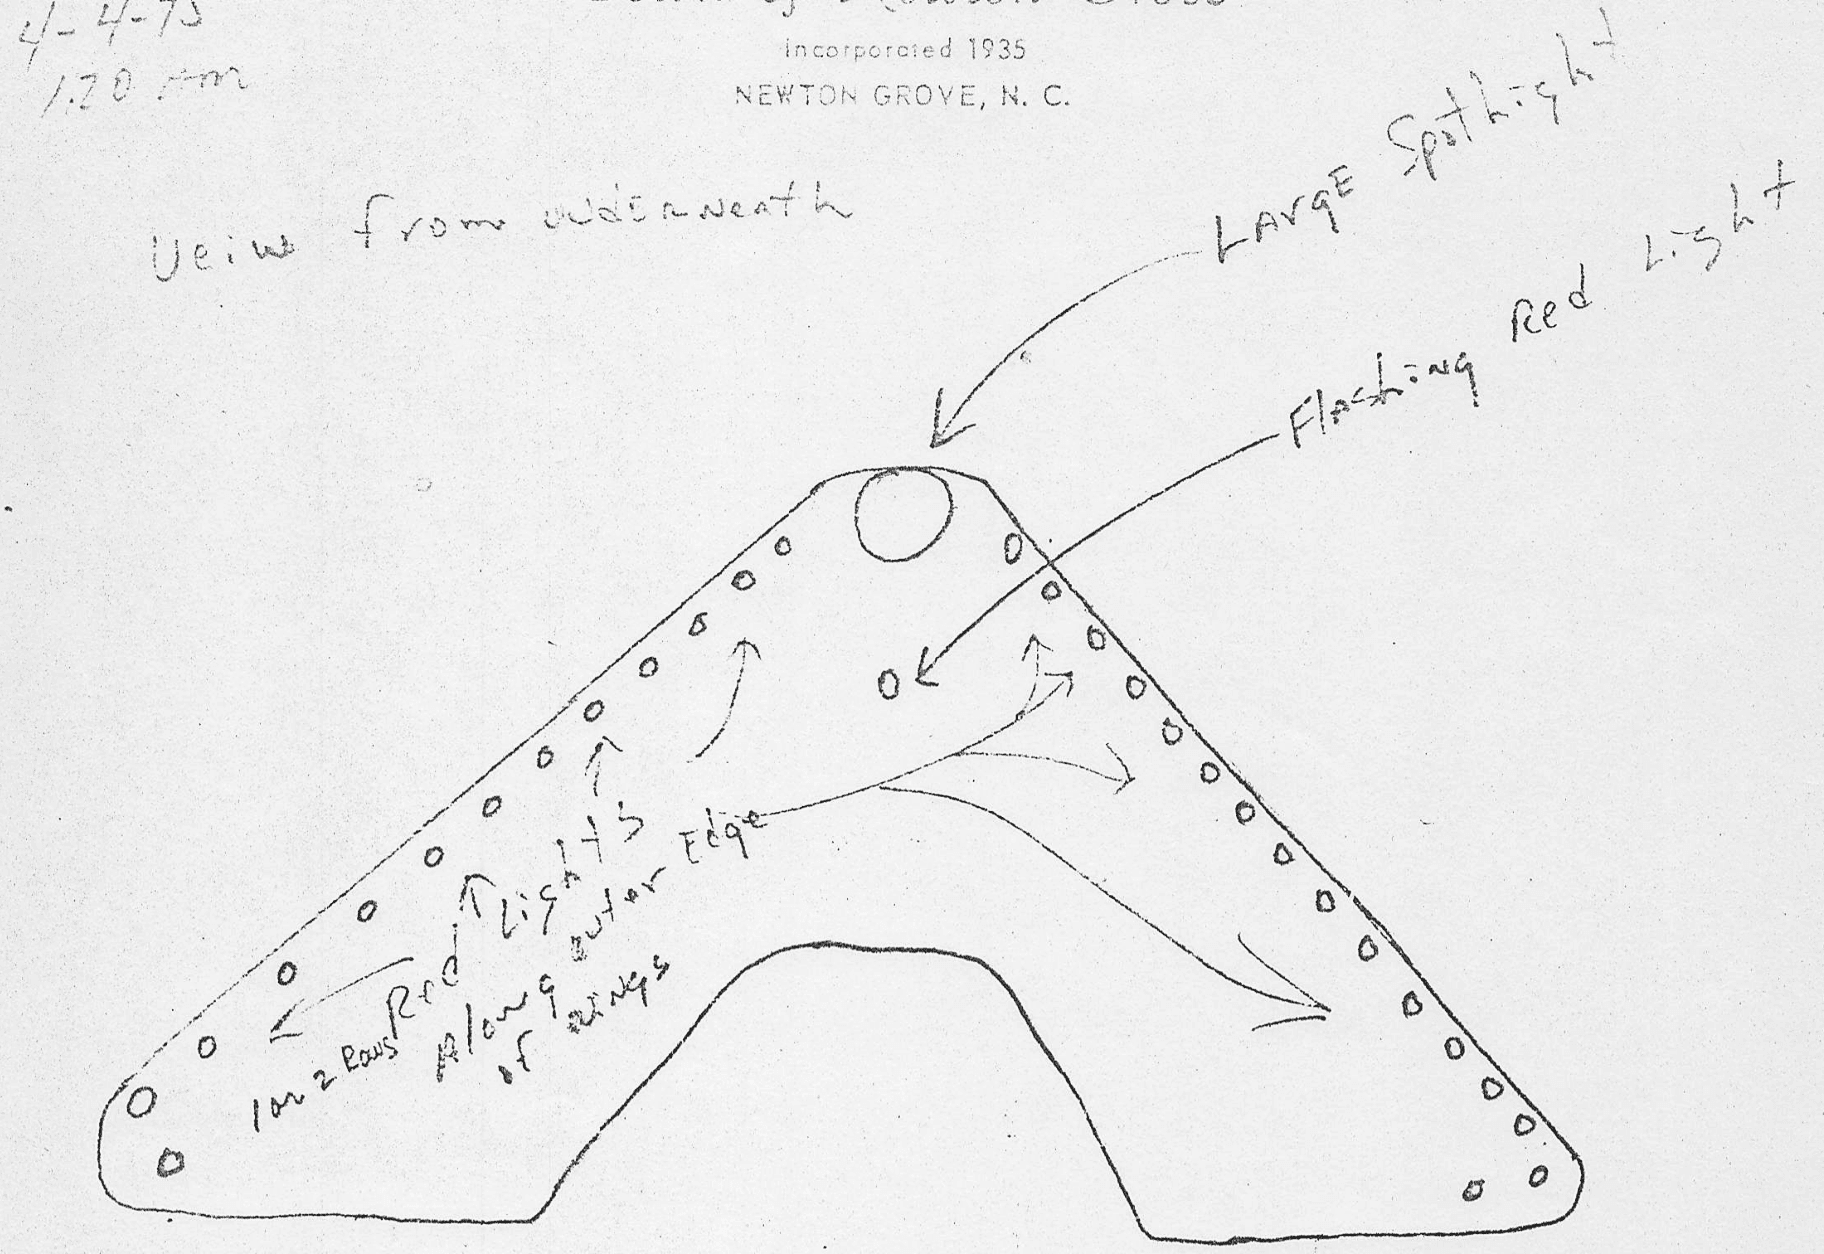 4-4-75
1:20 Am
Town of Newton Grove
Incorporated 1935
NEWTON GROVE, N. C.
LArgE SpotLight
Veiw from undERNeath
FlAshiNg Red Light
Red Lights
1 or 2 Rows
Along outer Edge
of wiNgs